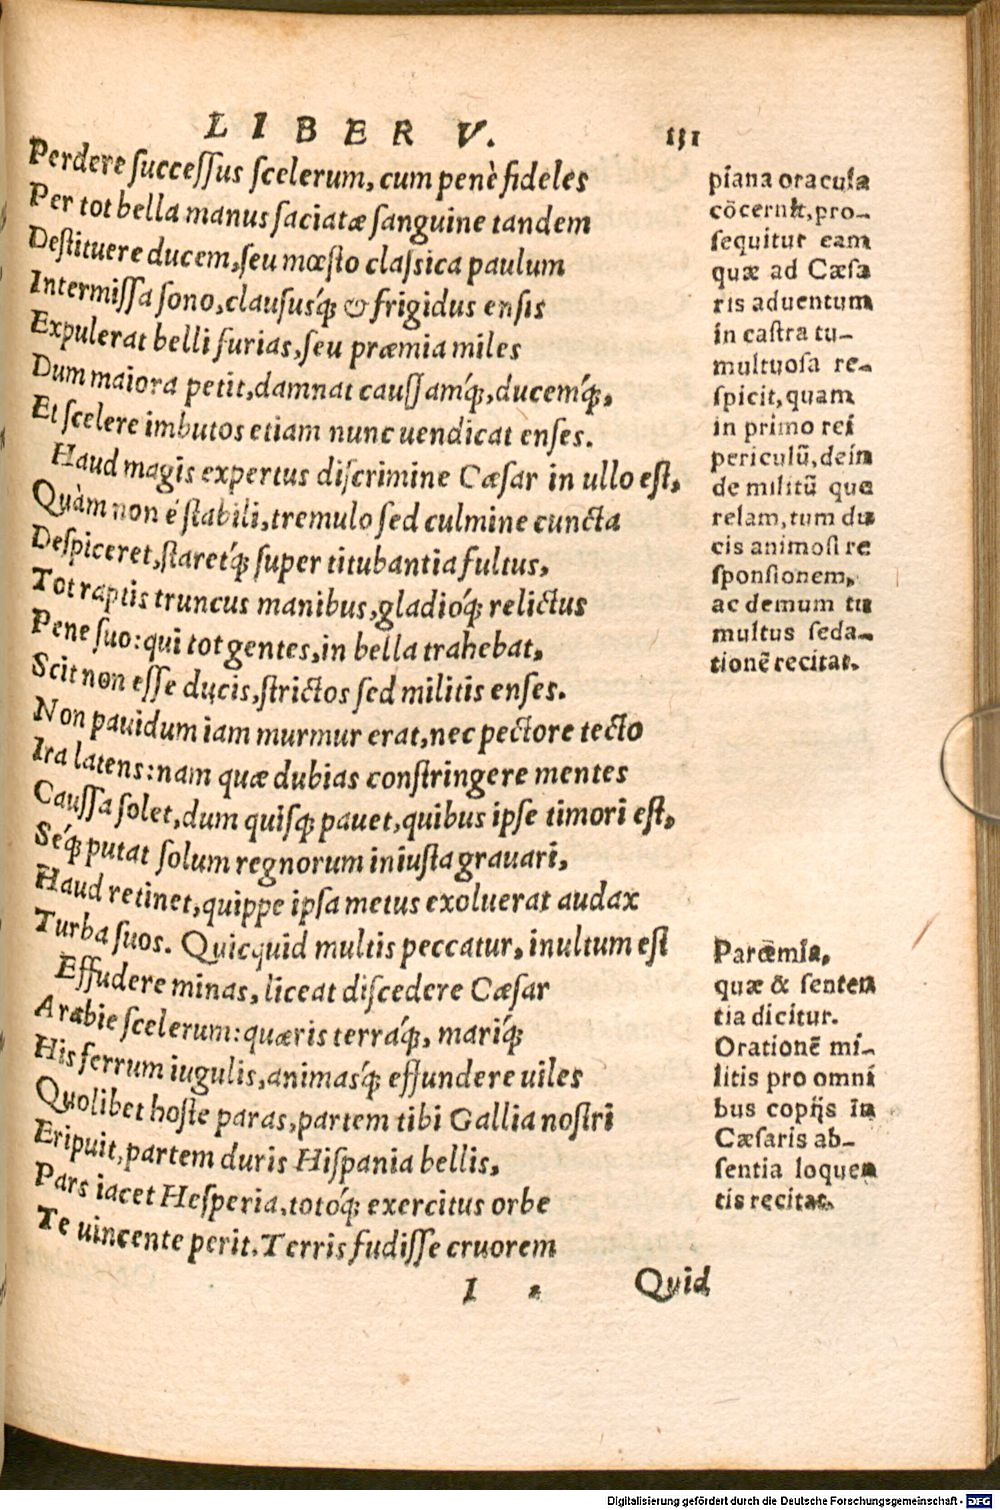 LIBER V. 131
Perdere ſucceſſus ſcelerum, cum penè fideles
Per tot bella manus ſaciatæ ſanguine tandem
Deſtituere ducem, ſeu mœſto claſsica paulum
Intermiſſa ſono, clauſusq́; & frigidus enſis
Expulerat belli furias, ſeu præmia miles
Dum maiora petit, damnat cauſſamq́;, ducemq́;,
Et ſcelere imbutos etiam nunc uendicat enſes.
Haud magis expertus diſcrimine Cæſar in ullo eſt,
Quàm non è ſtabili, tremulo ſed culmine cuncta
Deſpiceret, ſtaretq́; ſuper titubantia fultus,
Tot raptis truncus manibus, gladioq́; relictus
Pene ſuo: qui tot gentes, in bella trahebat,
Scit non eſſe ducis, ſtrictos ſed militis enſes.
Non pauidum iam murmur erat, nec pectore tecto
Ira latens: nam quæ dubias conſtringere mentes
Cauſſa ſolet, dum quiſq; pauet, quibus ipſe timori eſt,
Seq́; putat ſolum regnorum iniuſta grauari,
Haud retinet, quippe ipſa metus exoluerat audax
Turba ſuos. Quicquid multis peccatur, inultum eſt
Effudere minas, liceat diſcedere Cæſar
A rabie ſcelerum: quæris terraq́;, mariq́;
His ferrum iugulis, animasq́; effundere uiles
Quolibet hoſte paras, partem tibi Gallia noſtri
Eripuit, partem duris Hiſpania bellis,
Pars iacet Heſperia, totoq́; exercitus orbe
Te uincente perit. Terris fudiſſe cruorem
I Quid
piana oracula
cõcernit, pro-
ſequitur eam
quæ ad Cæſa
ris aduentum
in caſtra tu-
multuoſa re-
ſpicit, quam
in primo rei
periculũ, dein
de militũ que
relam, tum du
cis animoſi re
ſponſionem,
ac demum tu
multus ſeda-
tionẽ recitat.
Parœmia,
quæ & ſenten
tia dicitur.
Orationẽ mi-
litis pro omni
bus copijs in
Cæſaris ab-
ſentia loquen
tis recitat.
Digitalisierung gefördert durch die Deutsche Forschungsgemeinschaft - DFG